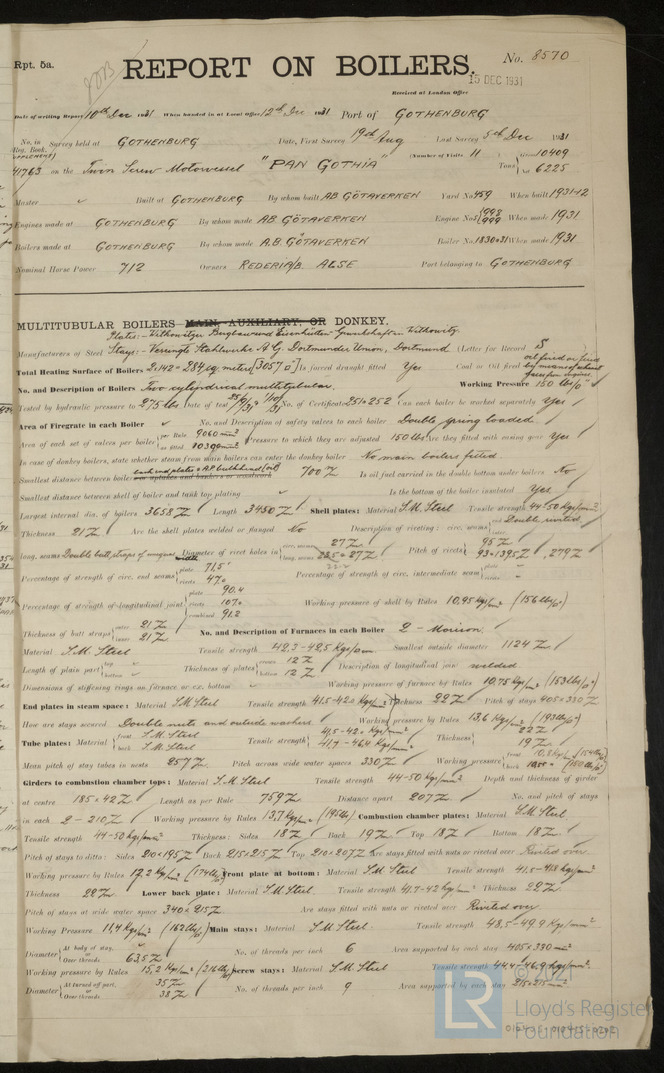 Rpt. 5a.
REPORT ON BOILERS.
No. 8570
15 DEC 1931
Received at London Office
Date of writing Report 10th Dec 1931 When handed in at Local Office 12th Dec 1931 Port of GOTHENBURG
No. in Reg. Book. Survey held at GOTHENBURG Date, First Survey 19th Aug Last Survey 5th Dec 1931
SUPPLEMENT (Number of Visits 11 Gross 10409
41763 on the Twin Screw Motorvessel "PAN GOTHIA" Tons Net 6225
Master Built at GOTHENBURG By whom built AB GÖTAVERKEN Yard No. 459 When built 1931-12
Engines made at GOTHENBURG By whom made AB. GÖTAVERKEN Engine No. 998 999 When made 1931
Boilers made at GOTHENBURG By whom made A.B. GÖTAVERKEN Boiler No. 1830+31 When made 1931
Nominal Horse Power 712 Owners REDERIA/B. ALSE Port belonging to GOTHENBURG
MULTITUBULAR BOILERS MAIN, AUXILIARY, OR DONKEY.
Plates:- Withowitzer Bergbau und Eisenhütten Withowitz
Manufacturers of Steel Stays:- Vereingte Stahlwerke A.G. Dortmunder Union, Dortmund (Letter for Record S
Total Heating Surface of Boilers 2.142 = 284 sq. meters [3057 □'] Is forced draught fitted Yes Coal or Oil fired oil fired or fired by means of exhaust gases from engines.
No. and Description of Boilers Two cylindrical multitubular. Working Pressure 150 lbs/□"
Tested by hydraulic pressure to 275 lbs Date of test No. of Certificate 251+252 Can each boiler be worked separately Yes
Area of Firegrate in each Boiler No. and Description of safety valves to each boiler Double spring loaded.
Area of each set of valves per boiler per Rule 9060 mm² as fitted Pressure to which they are adjusted 150 lbs Are they fitted with easing gear Yes
In case of donkey boilers, state whether steam from main boilers can enter the donkey boiler No main boilers fitted.
Smallest distance between boilers or uptakes and bunkers or woodwork back end plates & A.P. bulkhead (oil) 700 Z Is oil fuel carried in the double bottom under boilers No
Smallest distance between shell of boiler and tank top plating Is the bottom of the boiler insulated Yes
Largest internal dia. of boilers 3658 Z Length 3450 Z Shell plates: Material S.M. Steel Tensile strength 44-50 Kgs/mm²
Thickness 21 Z Are the shell plates welded or flanged No Description of riveting: circ. seams end Double riveted
long. seams Double butt, straps of unequal width Diameter of rivet holes in circ. seams 27 Z long. seams 27 Z Pitch of rivets 95 Z 279 Z
Percentage of strength of circ. end seams plate 71,5 rivets 47. Percentage of strength of circ. intermediate seam plate rivets
Percentage of strength of longitudinal joint plate 90.4 rivets 107. combined 91.2 Working pressure of shell by Rules 10,95 Kg/cm² (156 lbs/□")
Thickness of butt straps outer 21 Z inner 21 Z No. and Description of Furnaces in each Boiler 2 - Morison.
Material S.M. Steel Tensile strength 42.3-42.5 Kgs/mm Smallest outside diameter 1124 Z
Length of plain part top bottom Thickness of plates crown 12 Z bottom 12 Z Description of longitudinal joint welded
Dimensions of stiffening rings on furnace or c.c. bottom Working pressure of furnace by Rules 10,75 Kg/cm² (153 lbs/□")
End plates in steam space: Material S.M Steel Tensile strength 41.5-42.0 Kgs/mm² Thickness 22 Z Pitch of stays 405 x 330 Z
How are stays secured Double nuts and outside washers Working pressure by Rules 13,6 Kg/cm² (193 lbs/□")
Tube plates: Material front S.M. Steel back S.M. Steel Tensile strength 41,5-42.0 Kgs/mm² 41,7-46,4 Kgs/mm² Thickness 22 Z 19 Z
Mean pitch of stay tubes in nests 257 Z Pitch across wide water spaces 330 Z Working pressure front 10,8 Kg/cm² (154 lbs/□") back (150 lbs/□")
Girders to combustion chamber tops: Material S.M Steel Tensile strength 44-50 Kgs/mm² Depth and thickness of girder
at centre 185 x 42 Z Length as per Rule 759 Z Distance apart 207 Z No. and pitch of stays
in each 2 - 210 Z Working pressure by Rules 13,7 Kg/cm² (195 lbs/□") Combustion chamber plates: Material S.M. Steel
Tensile strength 44-50 Kgs/mm² Thickness: Sides 18 Z Back 19 Z Top 18 Z Bottom 18 Z
Pitch of stays to ditto: Sides 210 x 195 Z Back 215 x 215 Z Top 210 x 207 Z Are stays fitted with nuts or riveted over Riveted over.
Working pressure by Rules 12,2 Kg/cm² (174 lbs/□") Front plate at bottom: Material S.M Steel Tensile strength 41,5-41.8 Kgs/mm²
Thickness 22 Z Lower back plate: Material S.M Steel Tensile strength 41.7-42 Kgs/mm² Thickness 22 Z
Pitch of stays at wide water space 340 x 215 Z Are stays fitted with nuts or riveted over Riveted over
Working Pressure 11,4 Kg/cm² (162 lbs/□") Main stays: Material S.M Steel Tensile strength 48,5-49,9 Kgs/mm²
Diameter At body of stay, or Over threads 63,5 Z No. of threads per inch 6 Area supported by each stay 405 x 330 mm²
Working pressure by Rules 15,2 Kg/cm² (216 lbs/□") Screw stays: Material S.M Steel Tensile strength 44,4-46,9 Kgs/mm²
Diameter At turned off part, or Over threads 35 Z 38 Z No. of threads per inch 9 Area supported by each stay 215 x 215 mm²
LR © 2021
Lloyd's Register
Foundation